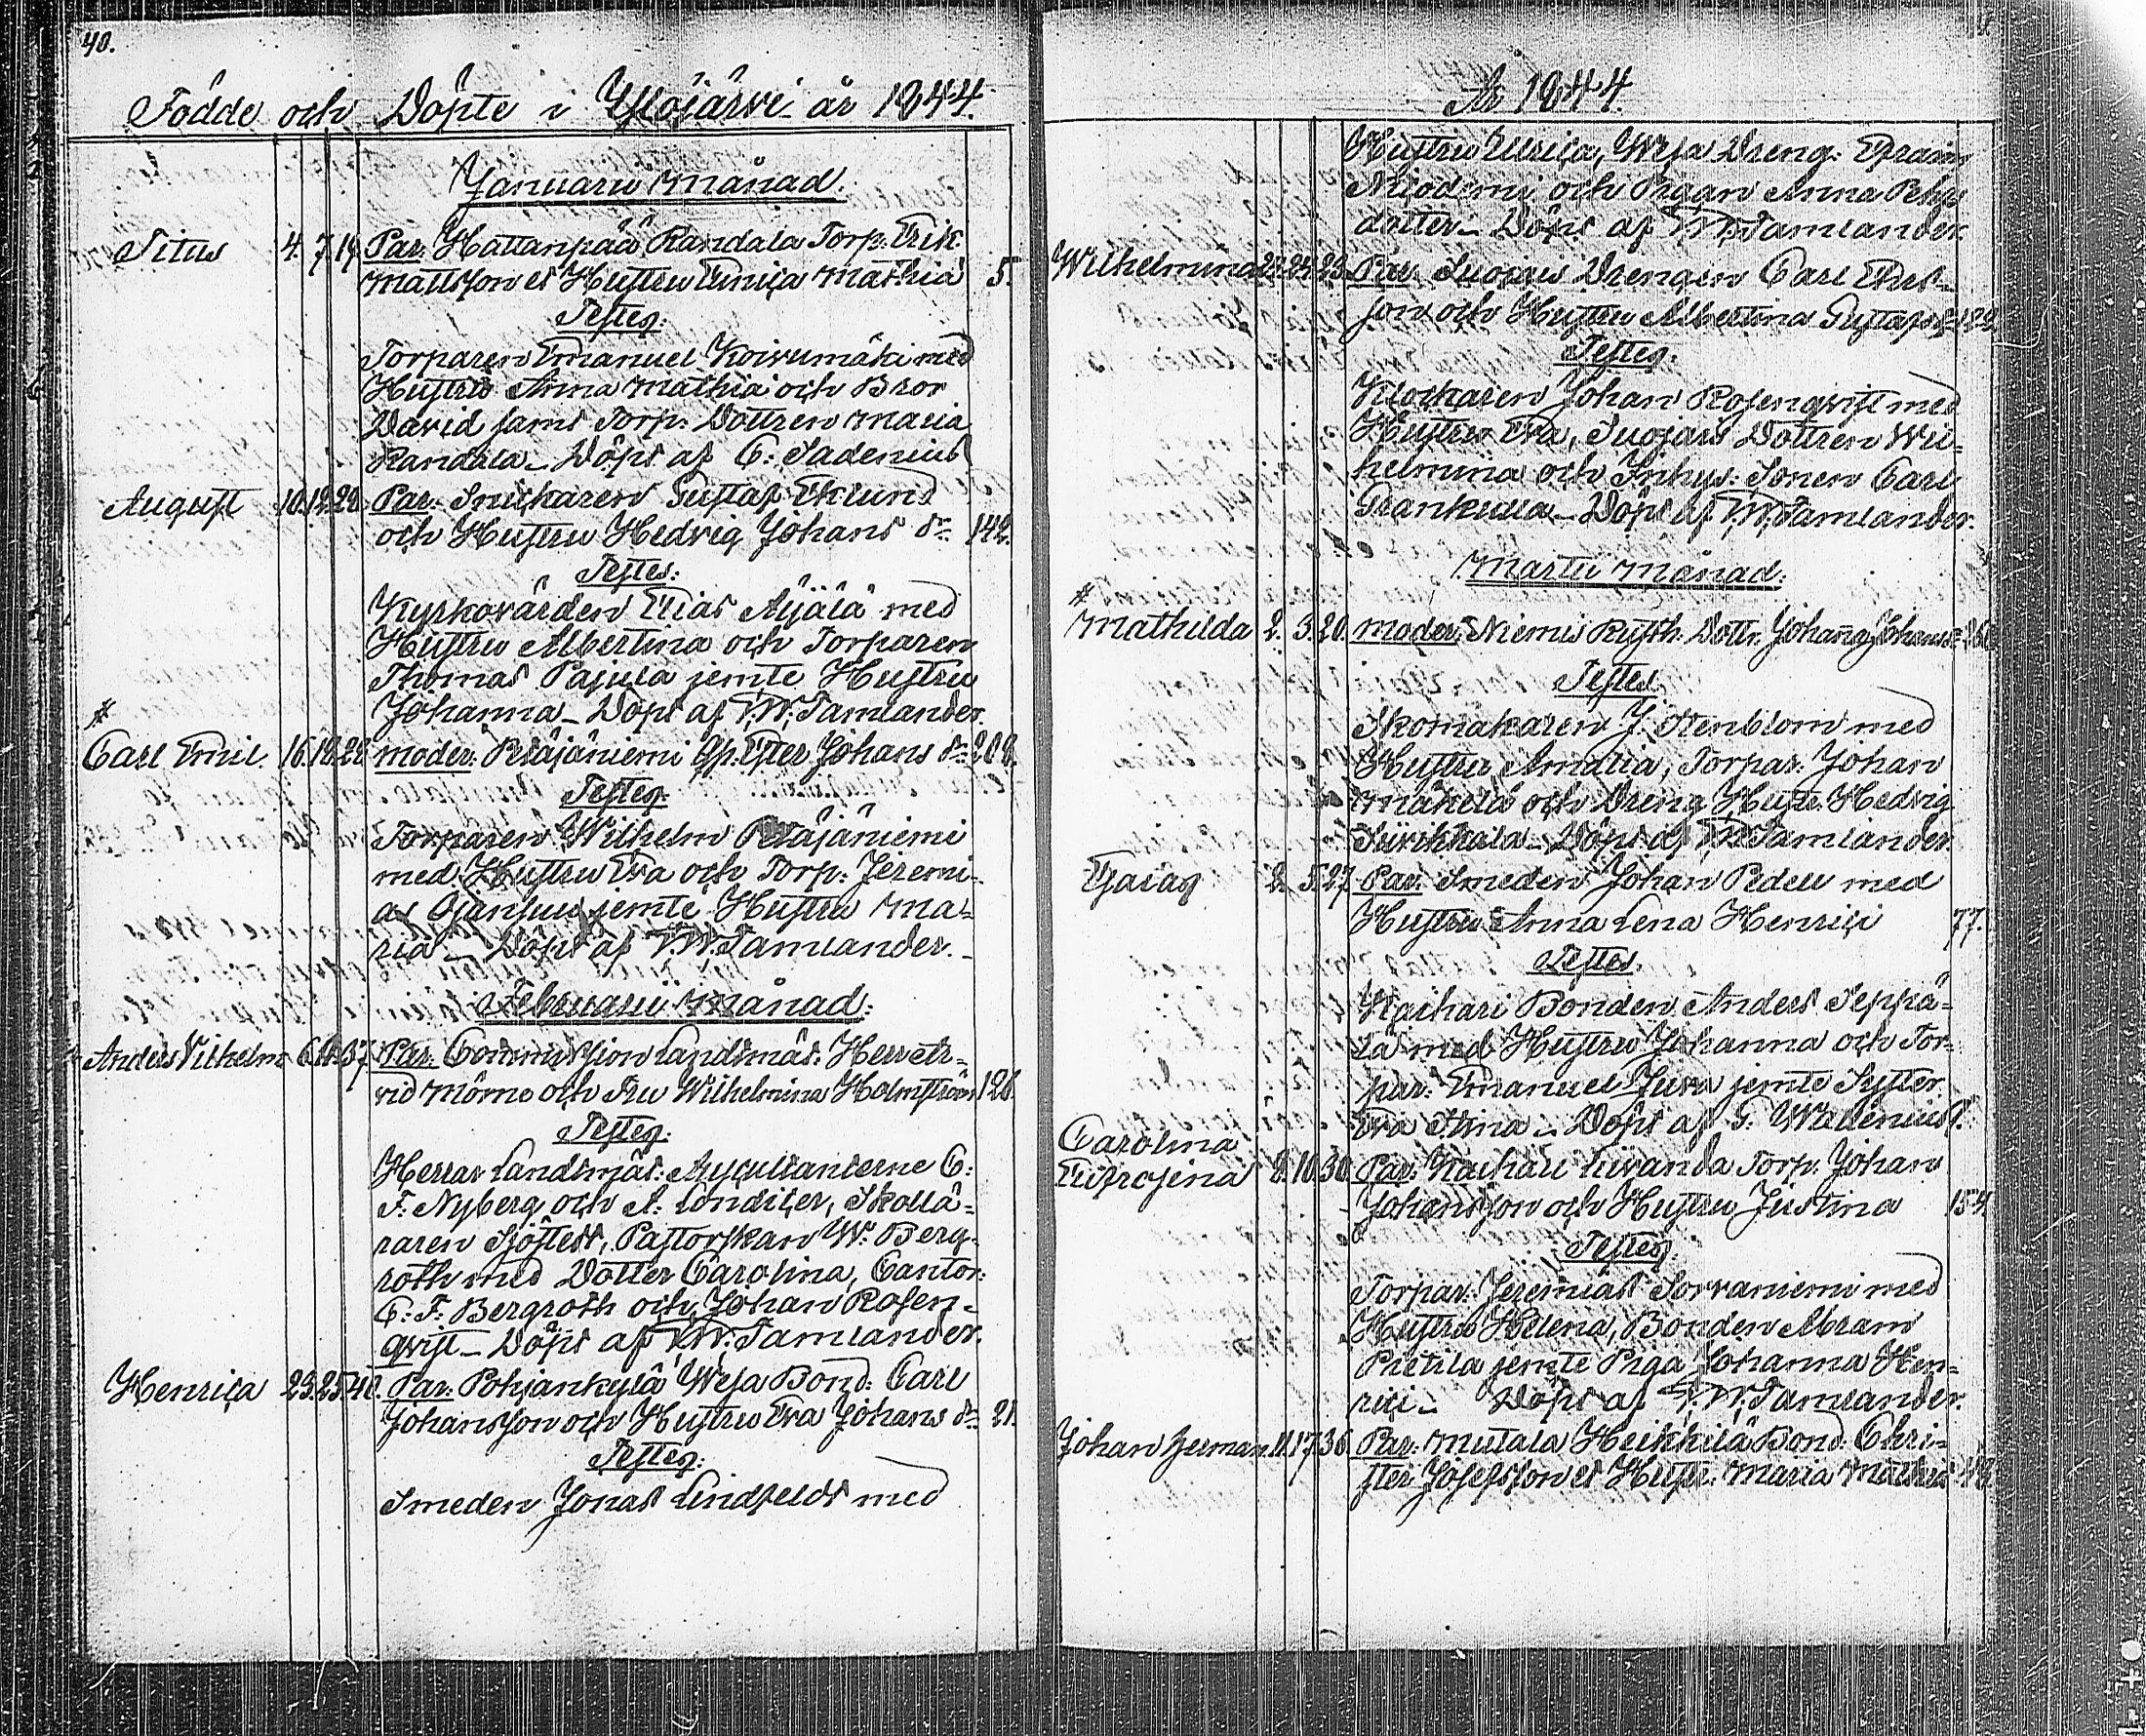 40.
Födde och Döpte i Ylöjärvi år 1844.
Januarii Månad.
Titus 4. 7. 19. Par: Hattanpää Randala Torp: Erik
Mattsson et Hustru Eunica Mathiæ 5.
Testes:
Torparen Emanuel Koivumäki med
Hustru Anna Mathiæ och Bror
David samt Torp: Dottren Maria
Randala _ Döpt af C: Sadenius
August 10. 12. 22. Par: Snickaren Gustaf Eklund
och Hustru Hedvig Johans dr. 142.
Testes:
Kyrkovärden Elias Äijälä med
Hustru Albertina och Torparen
Thomas Pajula jemte Hustru
Johanna _ Döpt af F. W. Tamlander.
#
Carl Emil. 16. 18. 22. Moder: Petäjäniemi Ester Johans dr. 208.
Testes:
Torparen Wilhelm Petäjäniemi
med Hustru Eva och Torp: Jeremi-
as Ojansuu jemte Hustru Ma-
ria _ Döpt af F. W. Tamlander. _
Februarii Månad:
Anders Vilhelm 6. 37. Par: Commission Landtmät: Herr
vid Mörne och Fru Wilhelmina Holmström 126.
Testes:
Herrar Landtmät: Auscultanterne C:
F: Nyberg och A: Londicer, Skollä-
raren Sjöstedt, Pastorskan W: Berg-
roth med Dotter Carolina, Cantor:
C: F: Bergroth och Johan Rosen-
qvist _ Döpt af F. W. Tamlander.
Henrica 23. 25. 40. Par: Pohjankylä Wesa Bond: Carl
Johansson och Hustru Eva Johans dr. 21.
Testes:
Smeden Jonas Lindfeldt med
År 1844
Hustru Ulrica, Wesa Dreng: Efraim
Nicodemi och Pigan Anna Pehrs
dotter _ Döpt af F. W. Tamlander.
Wilhelmina 22. 24. 23. Par: Suojais Drengen Carl
son och Hustru Albertina Gustafs 122.
Testes:
Klockaren Johan Rosenqvist med
Hustru Eva, Suojais Dottren Wil-
helmina och Inhys: Sonen Carl
Grankulla _ Döpt af F. W. Tamlander.
Martii Månad:
#
Mathilda 2. 3. 20. Moder: Niemis Rusth: Dottr. Johanna Johans
Testes:
Skomakaren J. Stenblom med
Hustru Amalia, Torpar: Johan
Mäkelä och Dreng Hustr. Hedvig
Siivikkala _ Döpt af F. W. Tamlander.
Esaias 2. 5. 27. Par: Smeden Johan Pedell med
Hustru Anna Lena Henrici 77.
Testes:
Kaihari Bonden Anders Seppä-
lä med Hustru Johanna och Tor-
par: Emanuel Jura jemte Syster
Eva Stina _ Döpt af G. Wallenius.
Carolina
Eufrosina 8. 10. 30. Par: Kaihari Liivanda Torp: Johan
Johansson och Hustru Justina 154.
Testes:
Torpar: Jeremias Sorvaniemi med
Hustru Helena, Bonden Abram
Pietilä jemte Piga Johanna Hen-
rici _ Döpt af F. W. Tamlander.
Johan Herman 11. 17. 36. Par: Mutala Heikkilä Bond: Chri-
ster Josefsson et Hustr: Maria Mathiæ